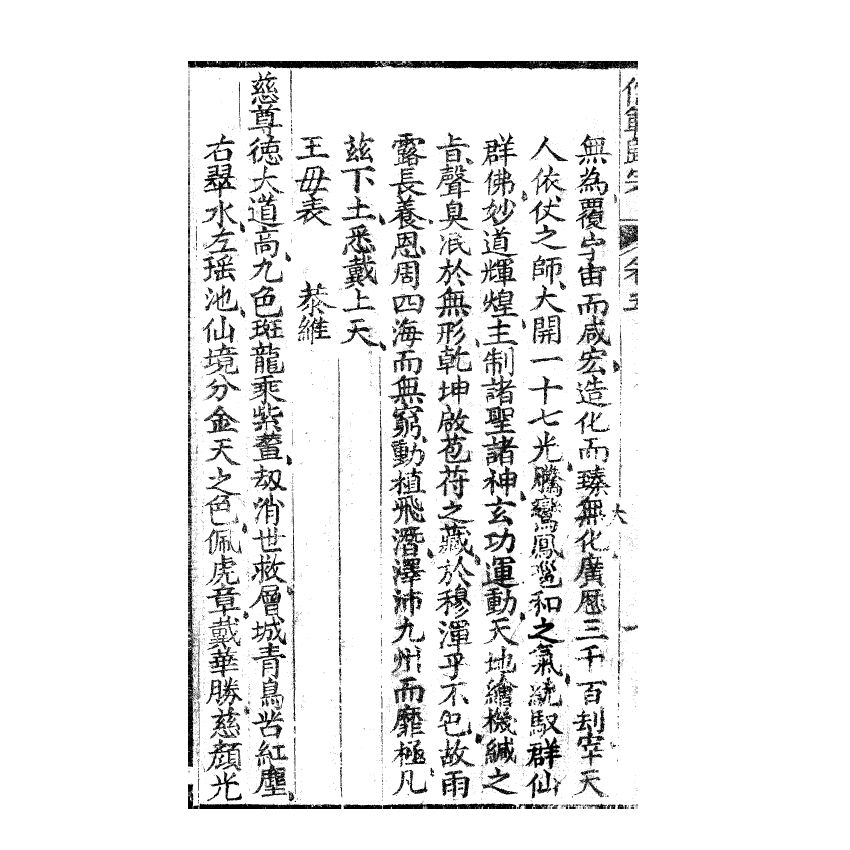 卷五
無為覆宇宙而咸宏造化而臻無化廣歷三千百刼宰天
大
人依仗之師大開一十七光騰鸞鳳邕和之氣統馭群仙
群佛妙道輝煌主制諸聖諸神玄功運動天地繪機緘之
旨聲臭泯於無形乾坤啟苞符之藏於穆渾乎不已故雨
露長養恩周四海而無窮動植飛潛澤沛九州而靡極凡
兹下土悉戴上天
王母表　　恭維
慈尊德大道高九色斑龍乘紫輦刼消世救層城青鳥出紅塵
右翠水左瑶池仙境分金天之色佩虎章戴華勝慈顔光